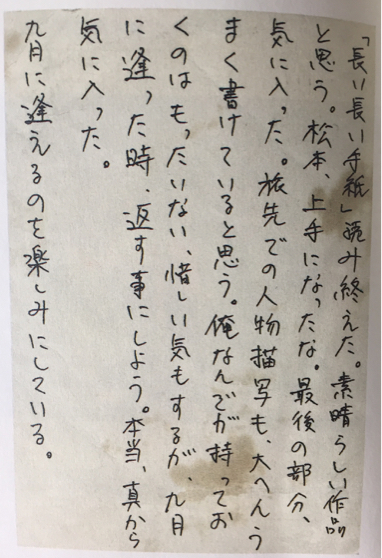 「長い長い手紙」読み終えた。素晴らしい作品
と思う。松本、上手になったな。最後の部分、
気に入った。旅先での人物描写も、大へんう
まく書けていると思う。俺なんでが持ってお
くのはもったいない、惜しい気もするが、九月
に逢った時、返す事にしよう。本当、真から
気に入った。
九月に逢えるのを楽しみにしている。